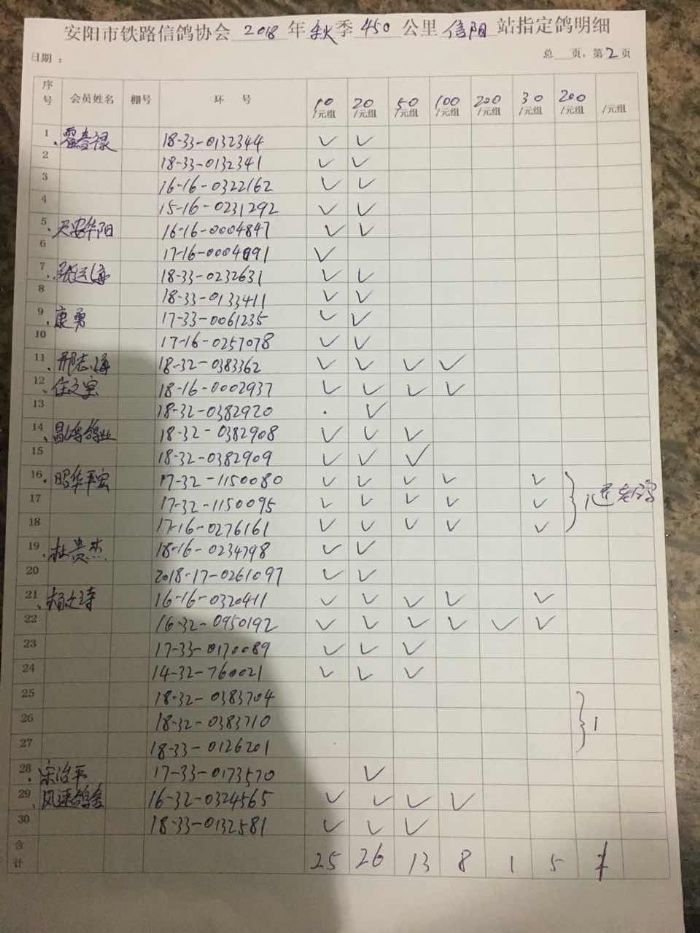 安阳市铁路信鸽协会 2018 年 秋 季 450 公里 信阳 站指定鸽明细
日期： 总 页，第 2 页
序号 会员姓名 棚号 环号 10/元组 20/元组 50/元组 100/元组 200/元组 30/元组 200/元组 /元组
1 18-33-0132344 ✓ ✓
2 18-33-0132341 ✓ ✓
3 16-16-0322162 ✓ ✓
4 15-16-0231292 ✓ ✓
5 天安华阳 16-16-0004847 ✓ ✓
6 17-16-0004991 ✓
7 18-33-0232631 ✓ ✓
8 18-33-0133411 ✓ ✓
9 康勇 17-33-0061235 ✓ ✓
10 17-16-0257078 ✓ ✓
11 邢志海 18-32-0383362 ✓ ✓ ✓ ✓
12 18-16-0002937 ✓ ✓ ✓ ✓
13 18-32-0382920 · ✓
14 昌鸿鸽业 18-32-0382908 ✓ ✓ ✓
15 18-32-0382909 ✓ ✓ ✓
16 昭华平宏 17-32-1150080 ✓ ✓ ✓ ✓ ✓
17 17-32-1150095 ✓ ✓ ✓ ✓ ✓ } 1
18 17-16-0276161 ✓ ✓ ✓ ✓ ✓
19 杜贵杰 18-16-0234798 ✓ ✓
20 2018-17-0261097 ✓ ✓
21 16-16-0320411 ✓ ✓ ✓ ✓ ✓
22 16-32-0950192 ✓ ✓ ✓ ✓ ✓ ✓
23 17-33-0170089 ✓ ✓ ✓
24 14-32-760021 ✓ ✓ ✓
25 18-32-0383704
26 18-32-0383710 } 1
27 18-33-0126201
28 宋治平 17-33-0173570 ✓
29 风速鸽舍 16-32-0324565 ✓ ✓ ✓ ✓
30 18-33-0132581 ✓ ✓ ✓
合计 25 26 13 8 1 5